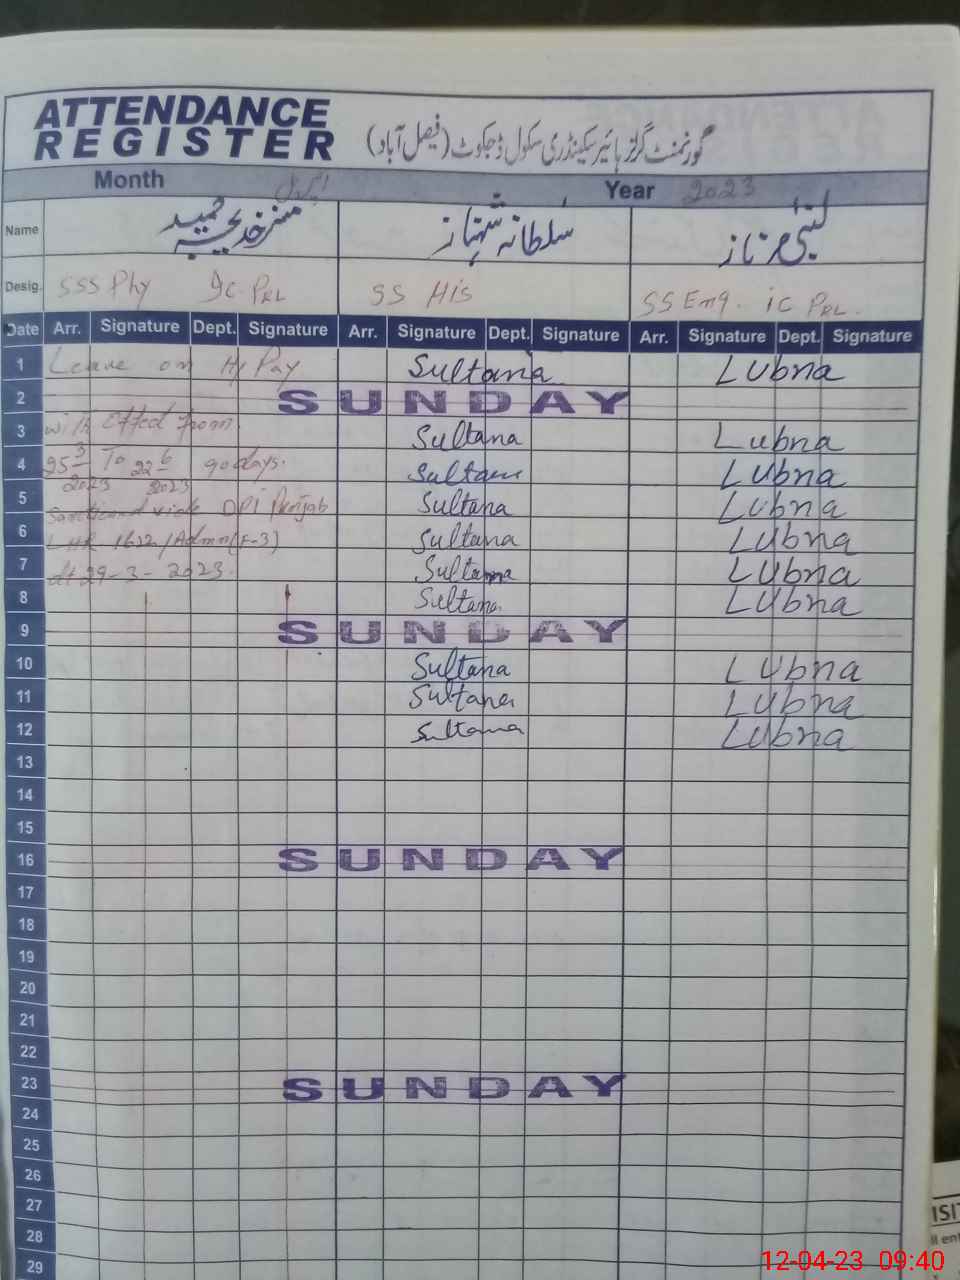 ATTENDANCE
REGISTER
گورنمنٹ گرلز ہائیر سیکنڈری سکول ڈجکوٹ (فیصل آباد)
Month اپریل Year 2023
Name مسز خدیجہ حمید سلطانہ شہناز لبنیٰ
Desig. SSS Phy Ic PRL SS HiS SS Eng. ic PRL.
Date Arr. Signature Dept. Signature Arr. Signature Dept. Signature Arr. Signature Dept. Signature
1 Leave on H/Pay Sultana Lubna
2 SUNDAY
with Effect from
3 Sultana Lubna
4 25 3/2023 To 22 6/2023 90 days. Sultana Lubna
5 Sanctioned vide DPI Punjab Sultana Lubna
6 LHR 1622/Admn(F-3) Sultana Lubna
7 dt 29-3-2023. Sultana Lubna
8 Sultana Lubna
9 SUNDAY
10 Sultana Lubna
11 Sultana Lubna
12 Sultana Lubna
13
14
15
16 SUNDAY
17
18
19
20
21
22
23 SUNDAY
24
25
26
27
28
29
12-04-23 09:40